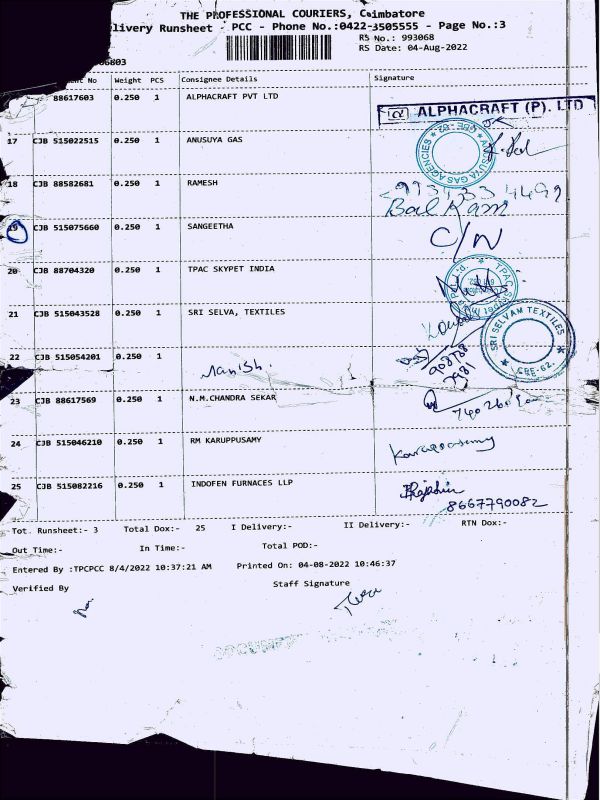 THE PROFESSIONAL COURIERS, Coimbatore
livery Runsheet - PCC - Phone No.:0422-3505555 - Page No.:3
RS No.: 993068
RS Date: 04-Aug-2022
06803
No Weight PCS Consignee Details Signature
88617603 0.250 1 ALPHACRAFT PVT LTD
ALPHACRAFT (P). LTD
17 CJB 515022515 0.250 1 ANUSUYA GAS
ANUSUYA GAS AGENCIES
18 CJB 88582681 0.250 1 RAMESH
Bal Ram
19 CJB 515075660 0.250 1 SANGEETHA C/N
20 CJB 88704320 0.250 1 TPAC SKYPET INDIA
21 CJB 515043528 0.250 1 SRI SELVA, TEXTILES
SRI SELVAM TEXTILES
CBE-62.
22 CJB 515054201 0.250 1
Manish.
908788
7981
23 CJB 88617569 0.250 1 N.M.CHANDRA SEKAR
24 CJB 515046210 0.250 1 RM KARUPPUSAMY
Karuppusamy
25 CJB 515082216 0.250 1 INDOFEN FURNACES LLP
8667790082
Tot. Runsheet:- 3 Total Dox:- 25 I Delivery:- II Delivery:- RTN Dox:-
Out Time:- In Time:- Total POD:-
Entered By :TPCPCC 8/4/2022 10:37:21 AM Printed On: 04-08-2022 10:46:37
Verified By Staff Signature